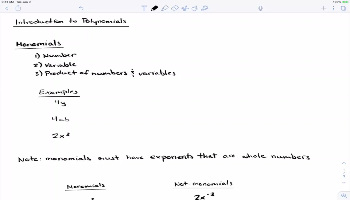 Introduction to Polynomials
Monomials
1) Number
2) Variable
3) Product of numbers & variables
Examples
4y
2x³
Note: monomials must have exponents that are whole numbers
Monomials Not monomials
2x⁻³